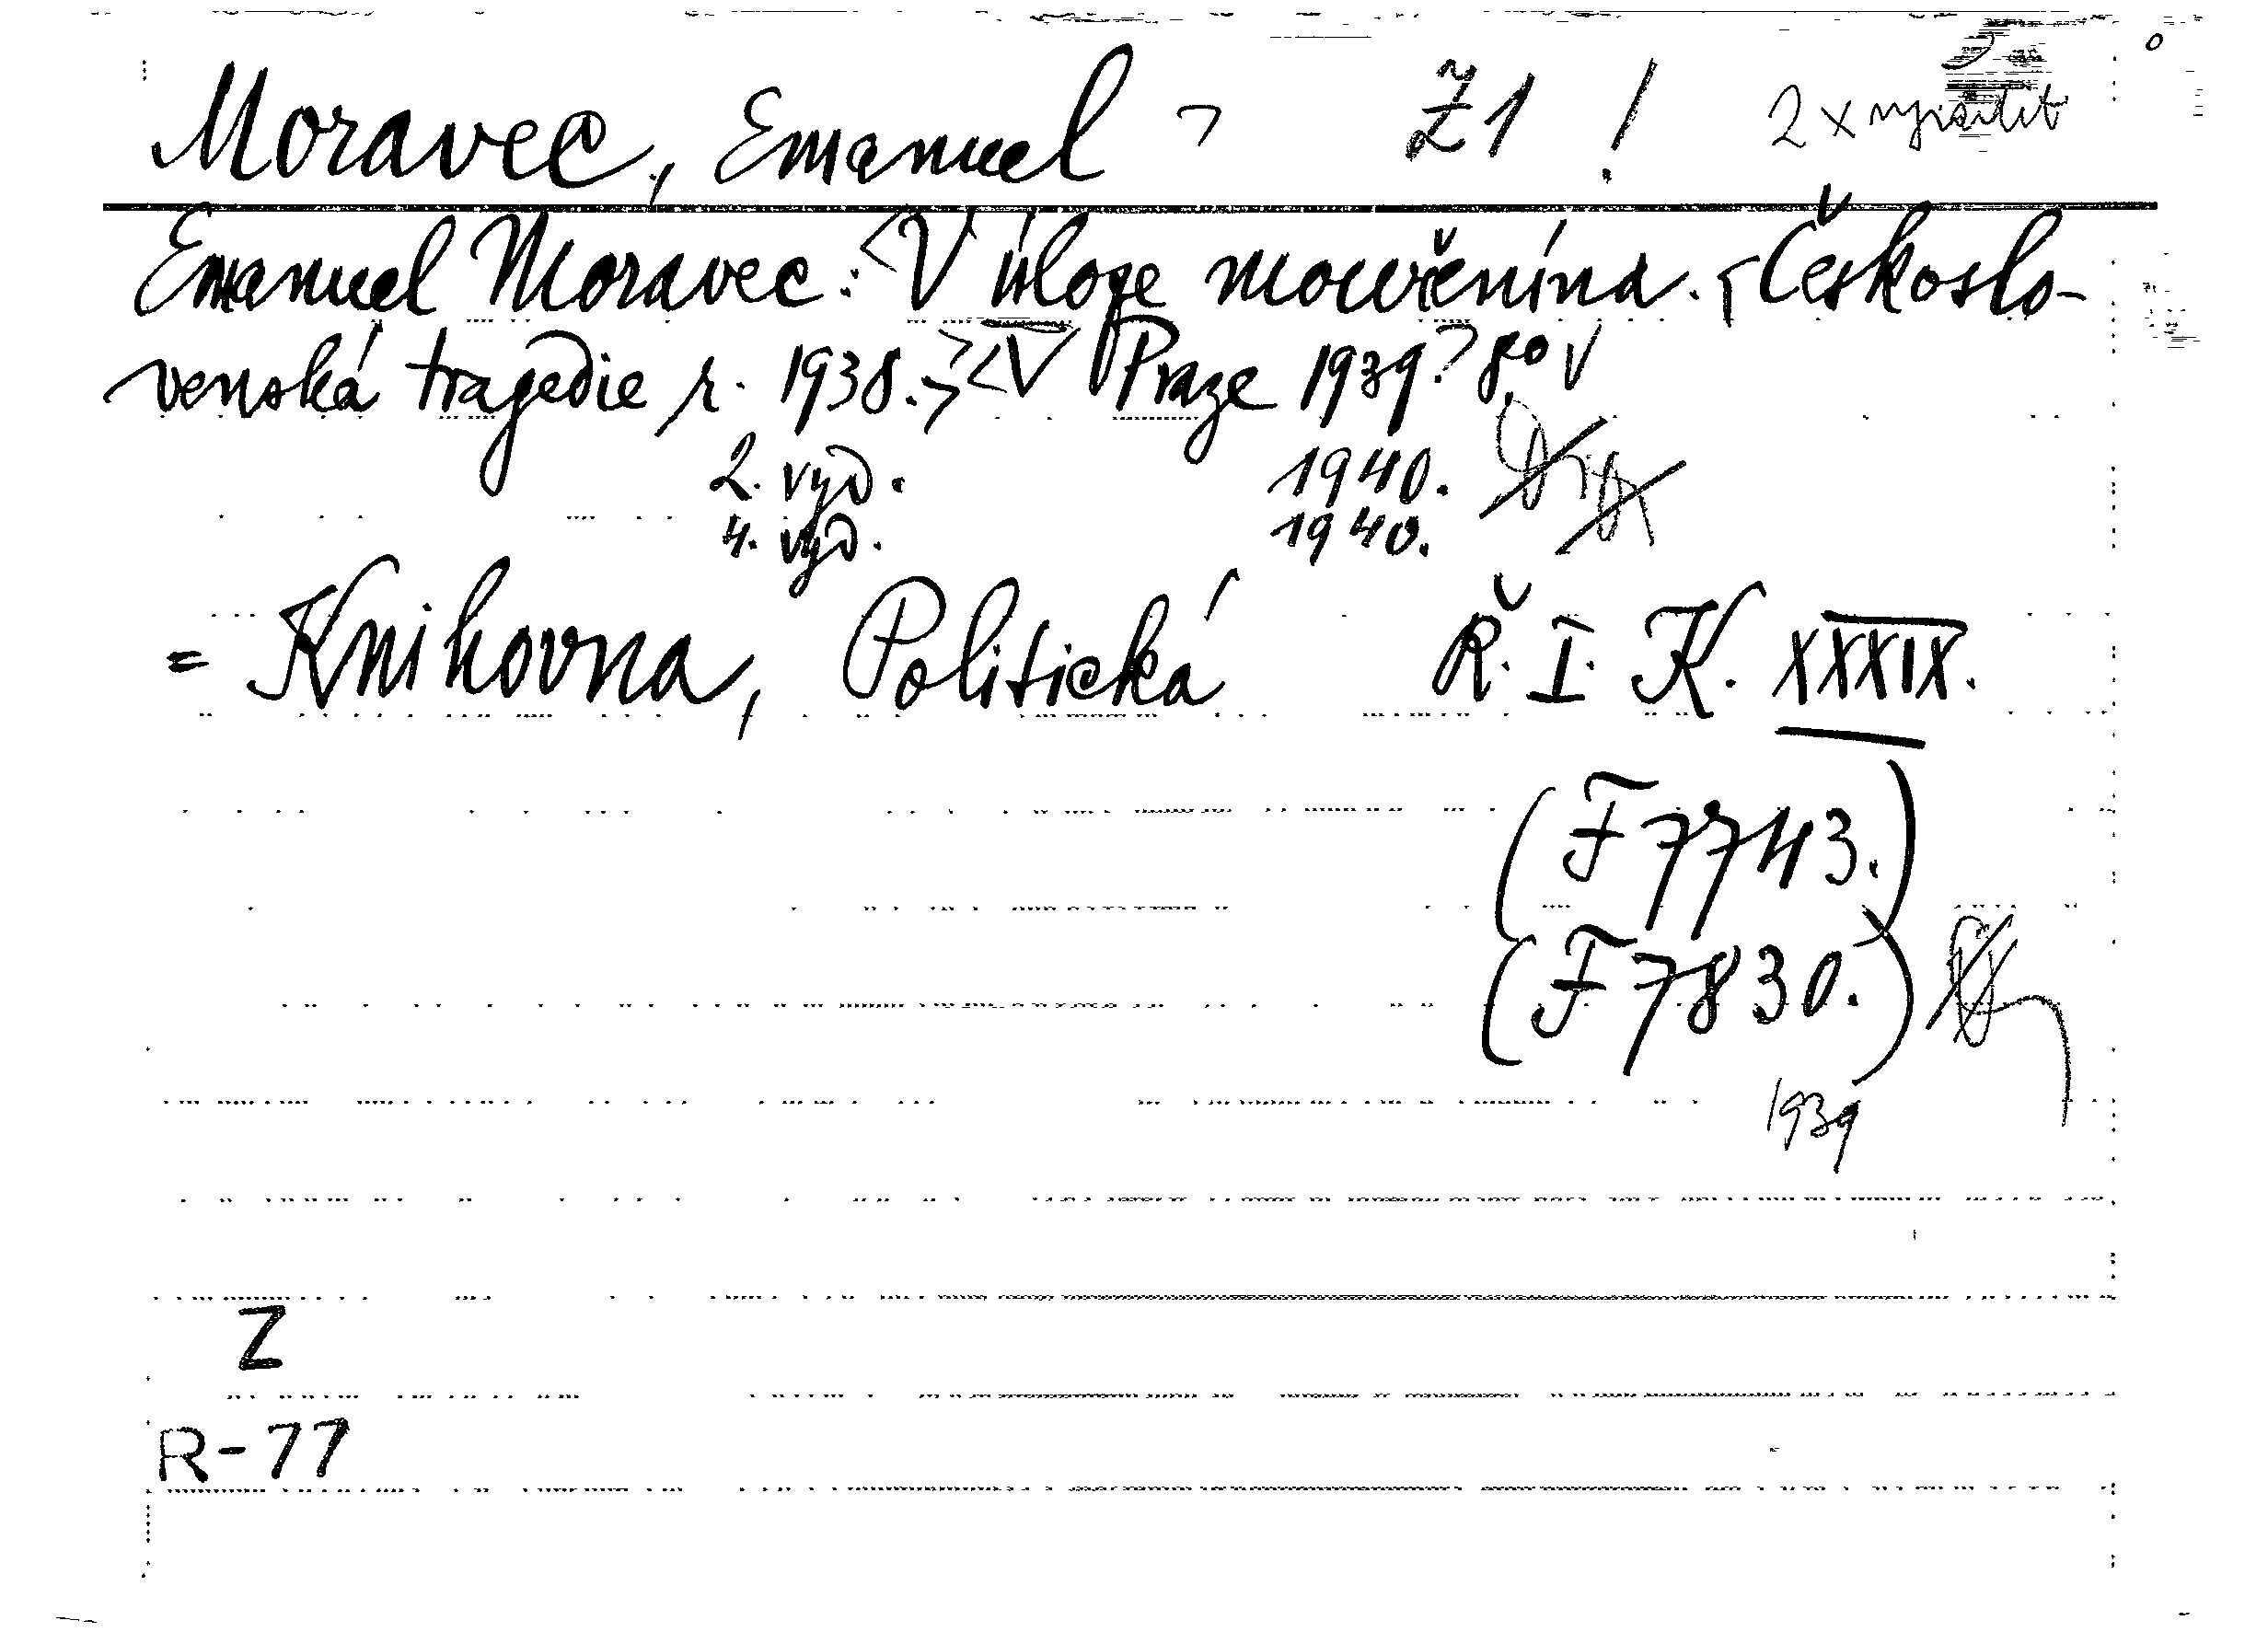 Moravec, Emanuel Z1 ! 2 x
Emanuel Moravec: <V úloze mouřenína. Českoslo-
venská tragedie r. 1938.> <V Praze 1939> 8° V
2. vyd. 1940.
4. vyd. 1940.
= Knihovna, Politická Ř. I. K. XXXIX.
(F 7743.)
(F 7830.)
1939
Z
R-77